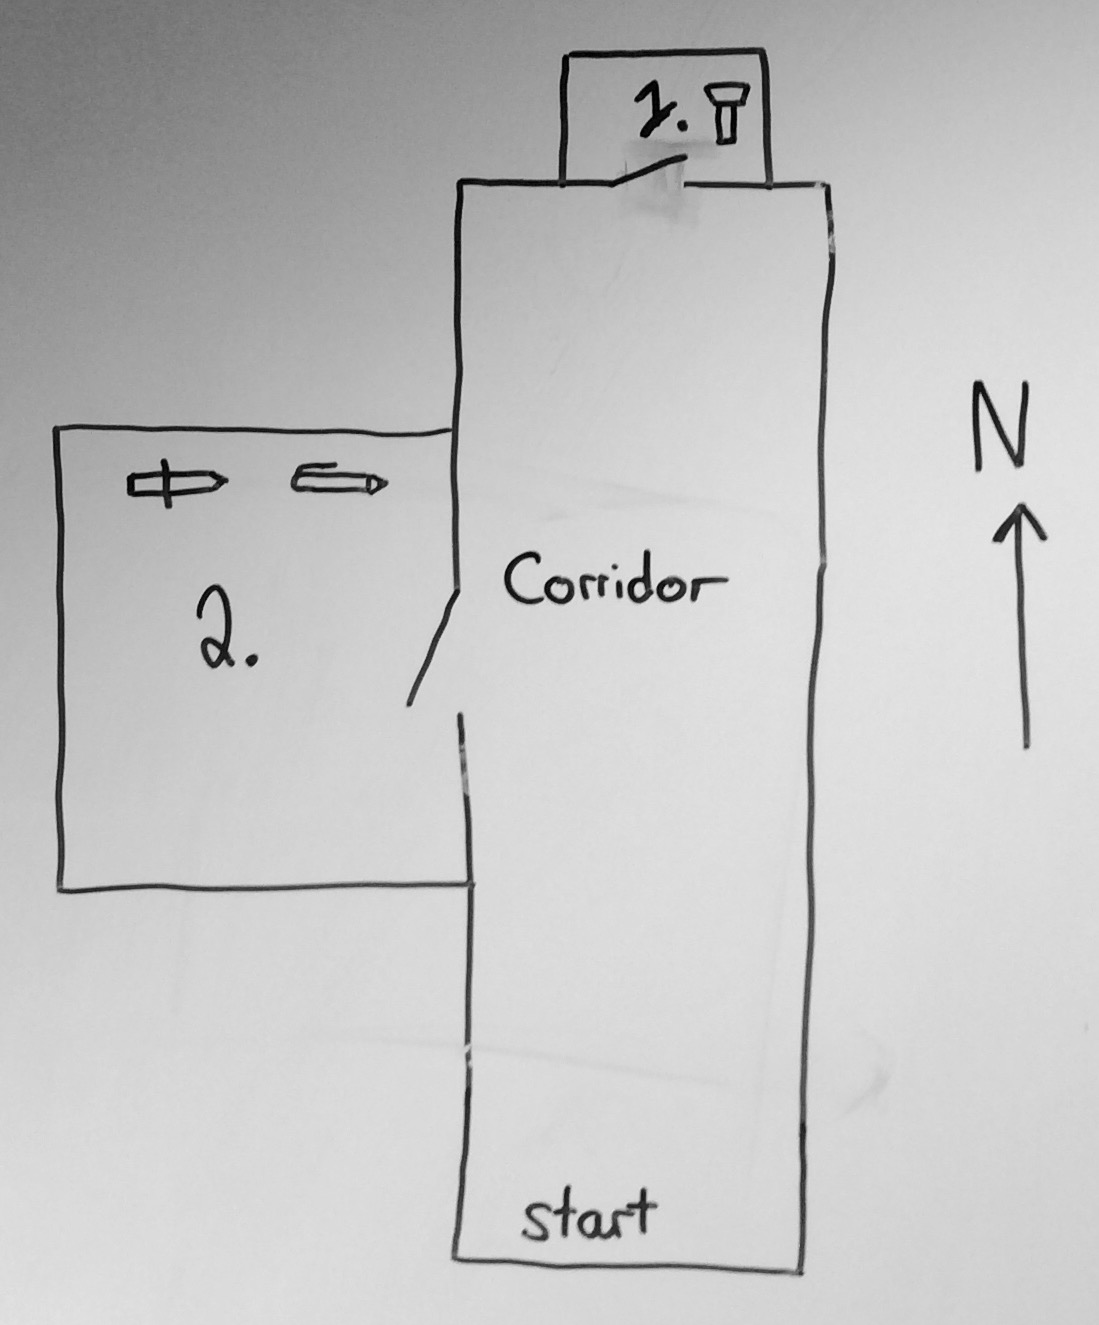 1.
N
Corridor
2.
start